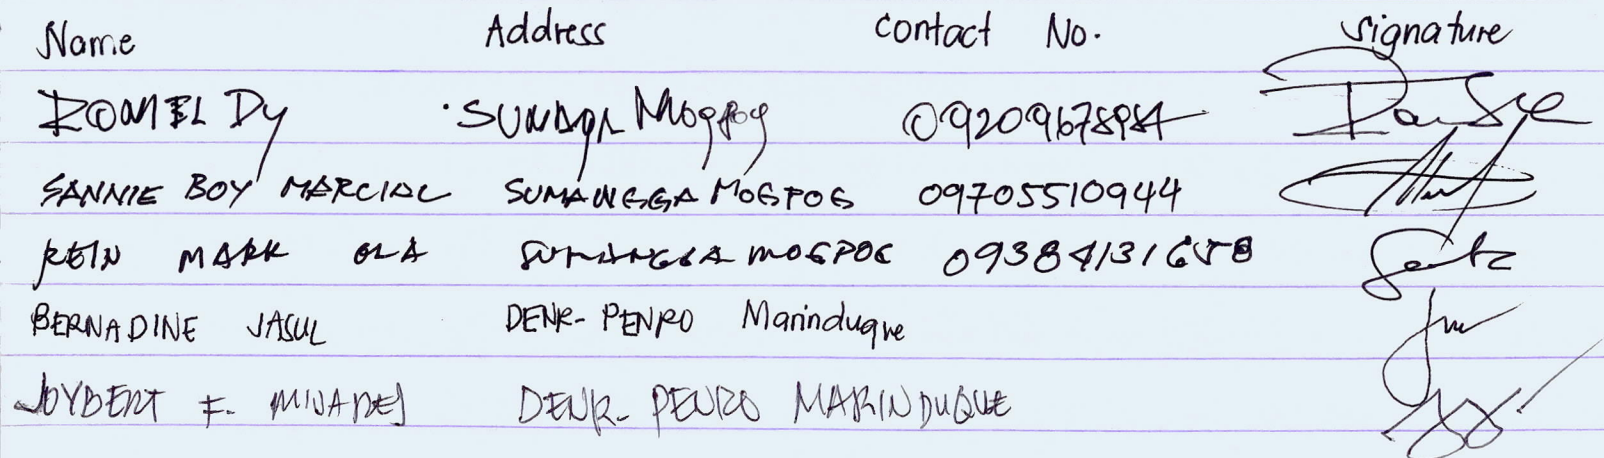 Name Address Contact No. Signature
ROMEL Dy Mogpog 09209678984
SANNIE BOY MARCIAL SUMANGGA MOGPOG 09705510944
REIN MARK OLA SUMANGGA MOGPOG 09384131658
BERNADINE JASUL DENR- PENRO Marinduque
JOYBERT F. MIJARES DENR- PENRO MARINDUQUE